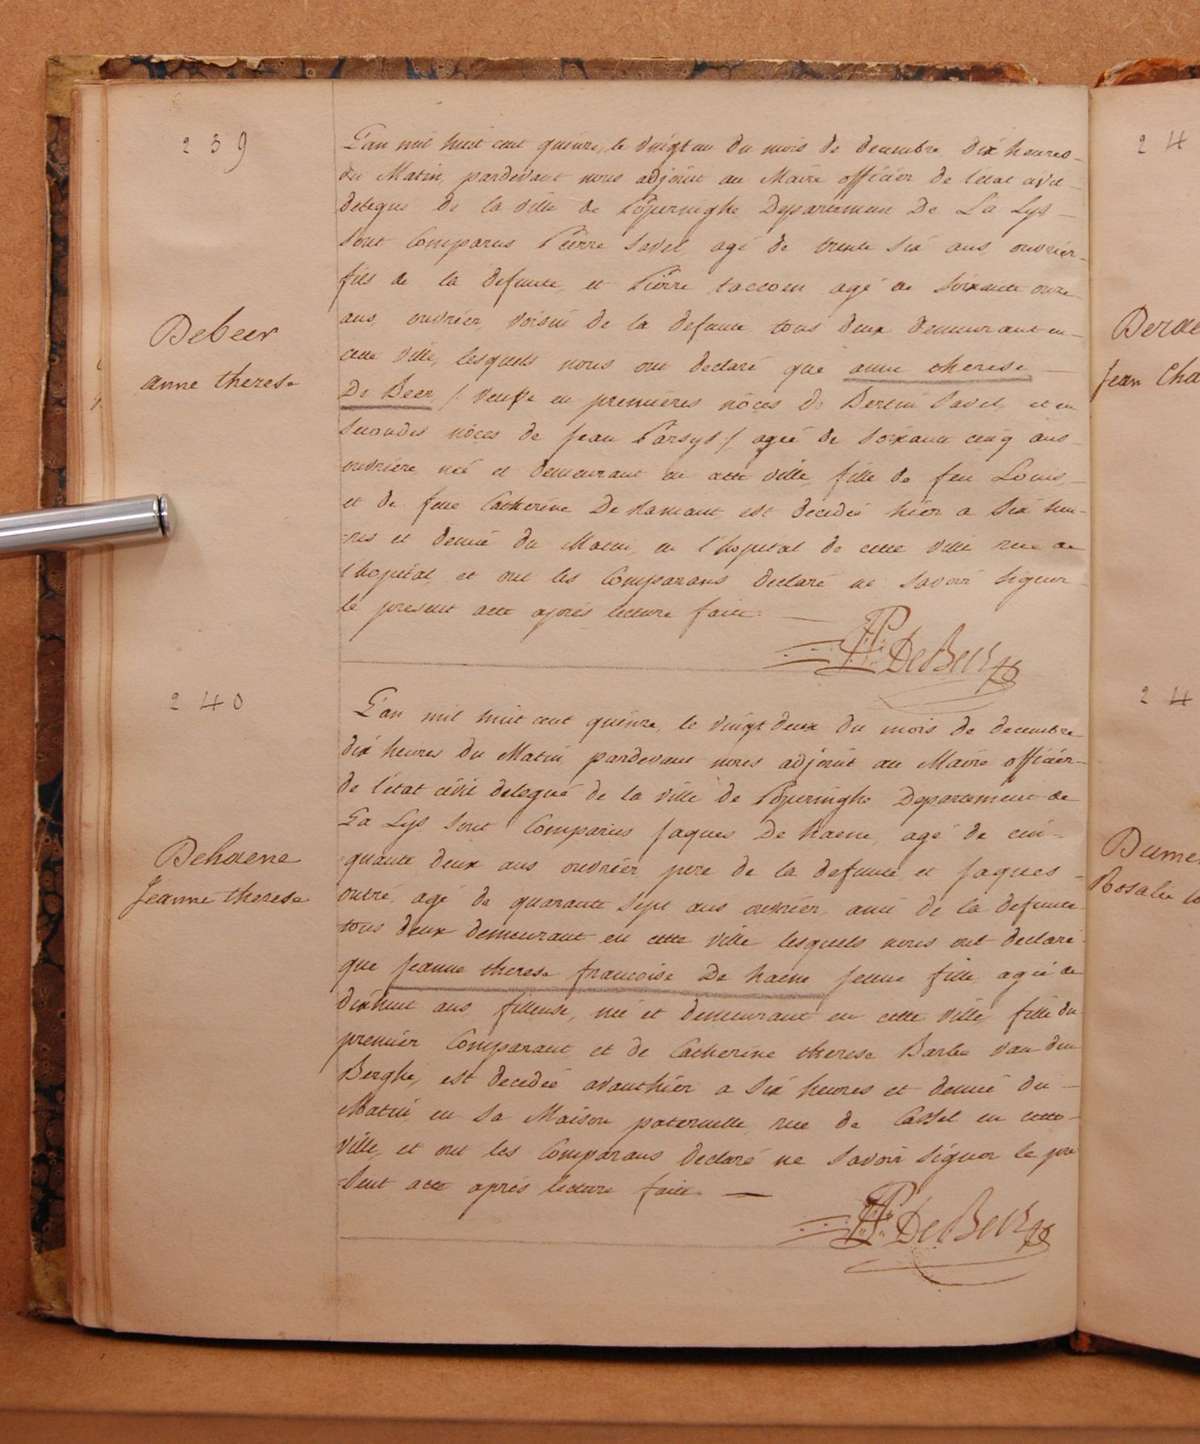 239
Debeer
anne therese
L'an mil huit cent quinze, le vingt un du mois de decembre dix heures
du Matin, pardevant nous adjoint au Maire officier de l'etat civil
delegué de la ville de Poperinghe Departement De La Lys
sont Comparus Pierre Savel, agé de trente six ans, ouvrier
fils de la defunte, et Pierre taccoen agé de soixante onze
ans, ouvrier, voisin de la defunte tous deux demeurant en
cette ville, lesquels nous ont declaré que anne therese
De Beer / veuve en premieres nôces de Bertin Savel, et en
secondes nôces de Jean Parsys / agée de soixante cinq ans
ouvriere, née et demeurant en cette ville fille de feu Louis
et de feue Catherine De Hamant est decedée hier a six heu-
-res et demie du Matin, en l'hopital de cette ville rue de
l'hopital, et ont les Comparans declaré ne savoir signer
le present acte après lecture faite.
DeBeer
240
Dehaene
Jeanne therese
L'an mil huit cent quinze, le vingt deux du mois de decembre
dix heures du Matin pardevant nous adjoint au Maire officier
de l'état civil delegué de la ville de Poperinghe Departement de
La Lys sont Comparus Jaques De haene, agé de cin-
quante deux ans ouvrier pere de la defunte et Jaques
outré, agé de quarante sept ans ouvrier, ami de la defunte
tous deux demeurant en cette ville lesquels nous ont declaré
que Jeanne therese francoise De haene jeune fille agée de
dixhuit ans fileuse, née et demeurant en cette ville, fille du
premier Comparant et de Catherine therese Barbe van den
Berghe, est decedée avanthier a six heures et demie du
Matin, en sa Maison paternelle, rue de Cassel en cette
ville, et ont les Comparans declaré ne savoir signer le pre
sent acte après lecture faite.
DeBeer
24
Jean Cha
24
Dume
Rosalie